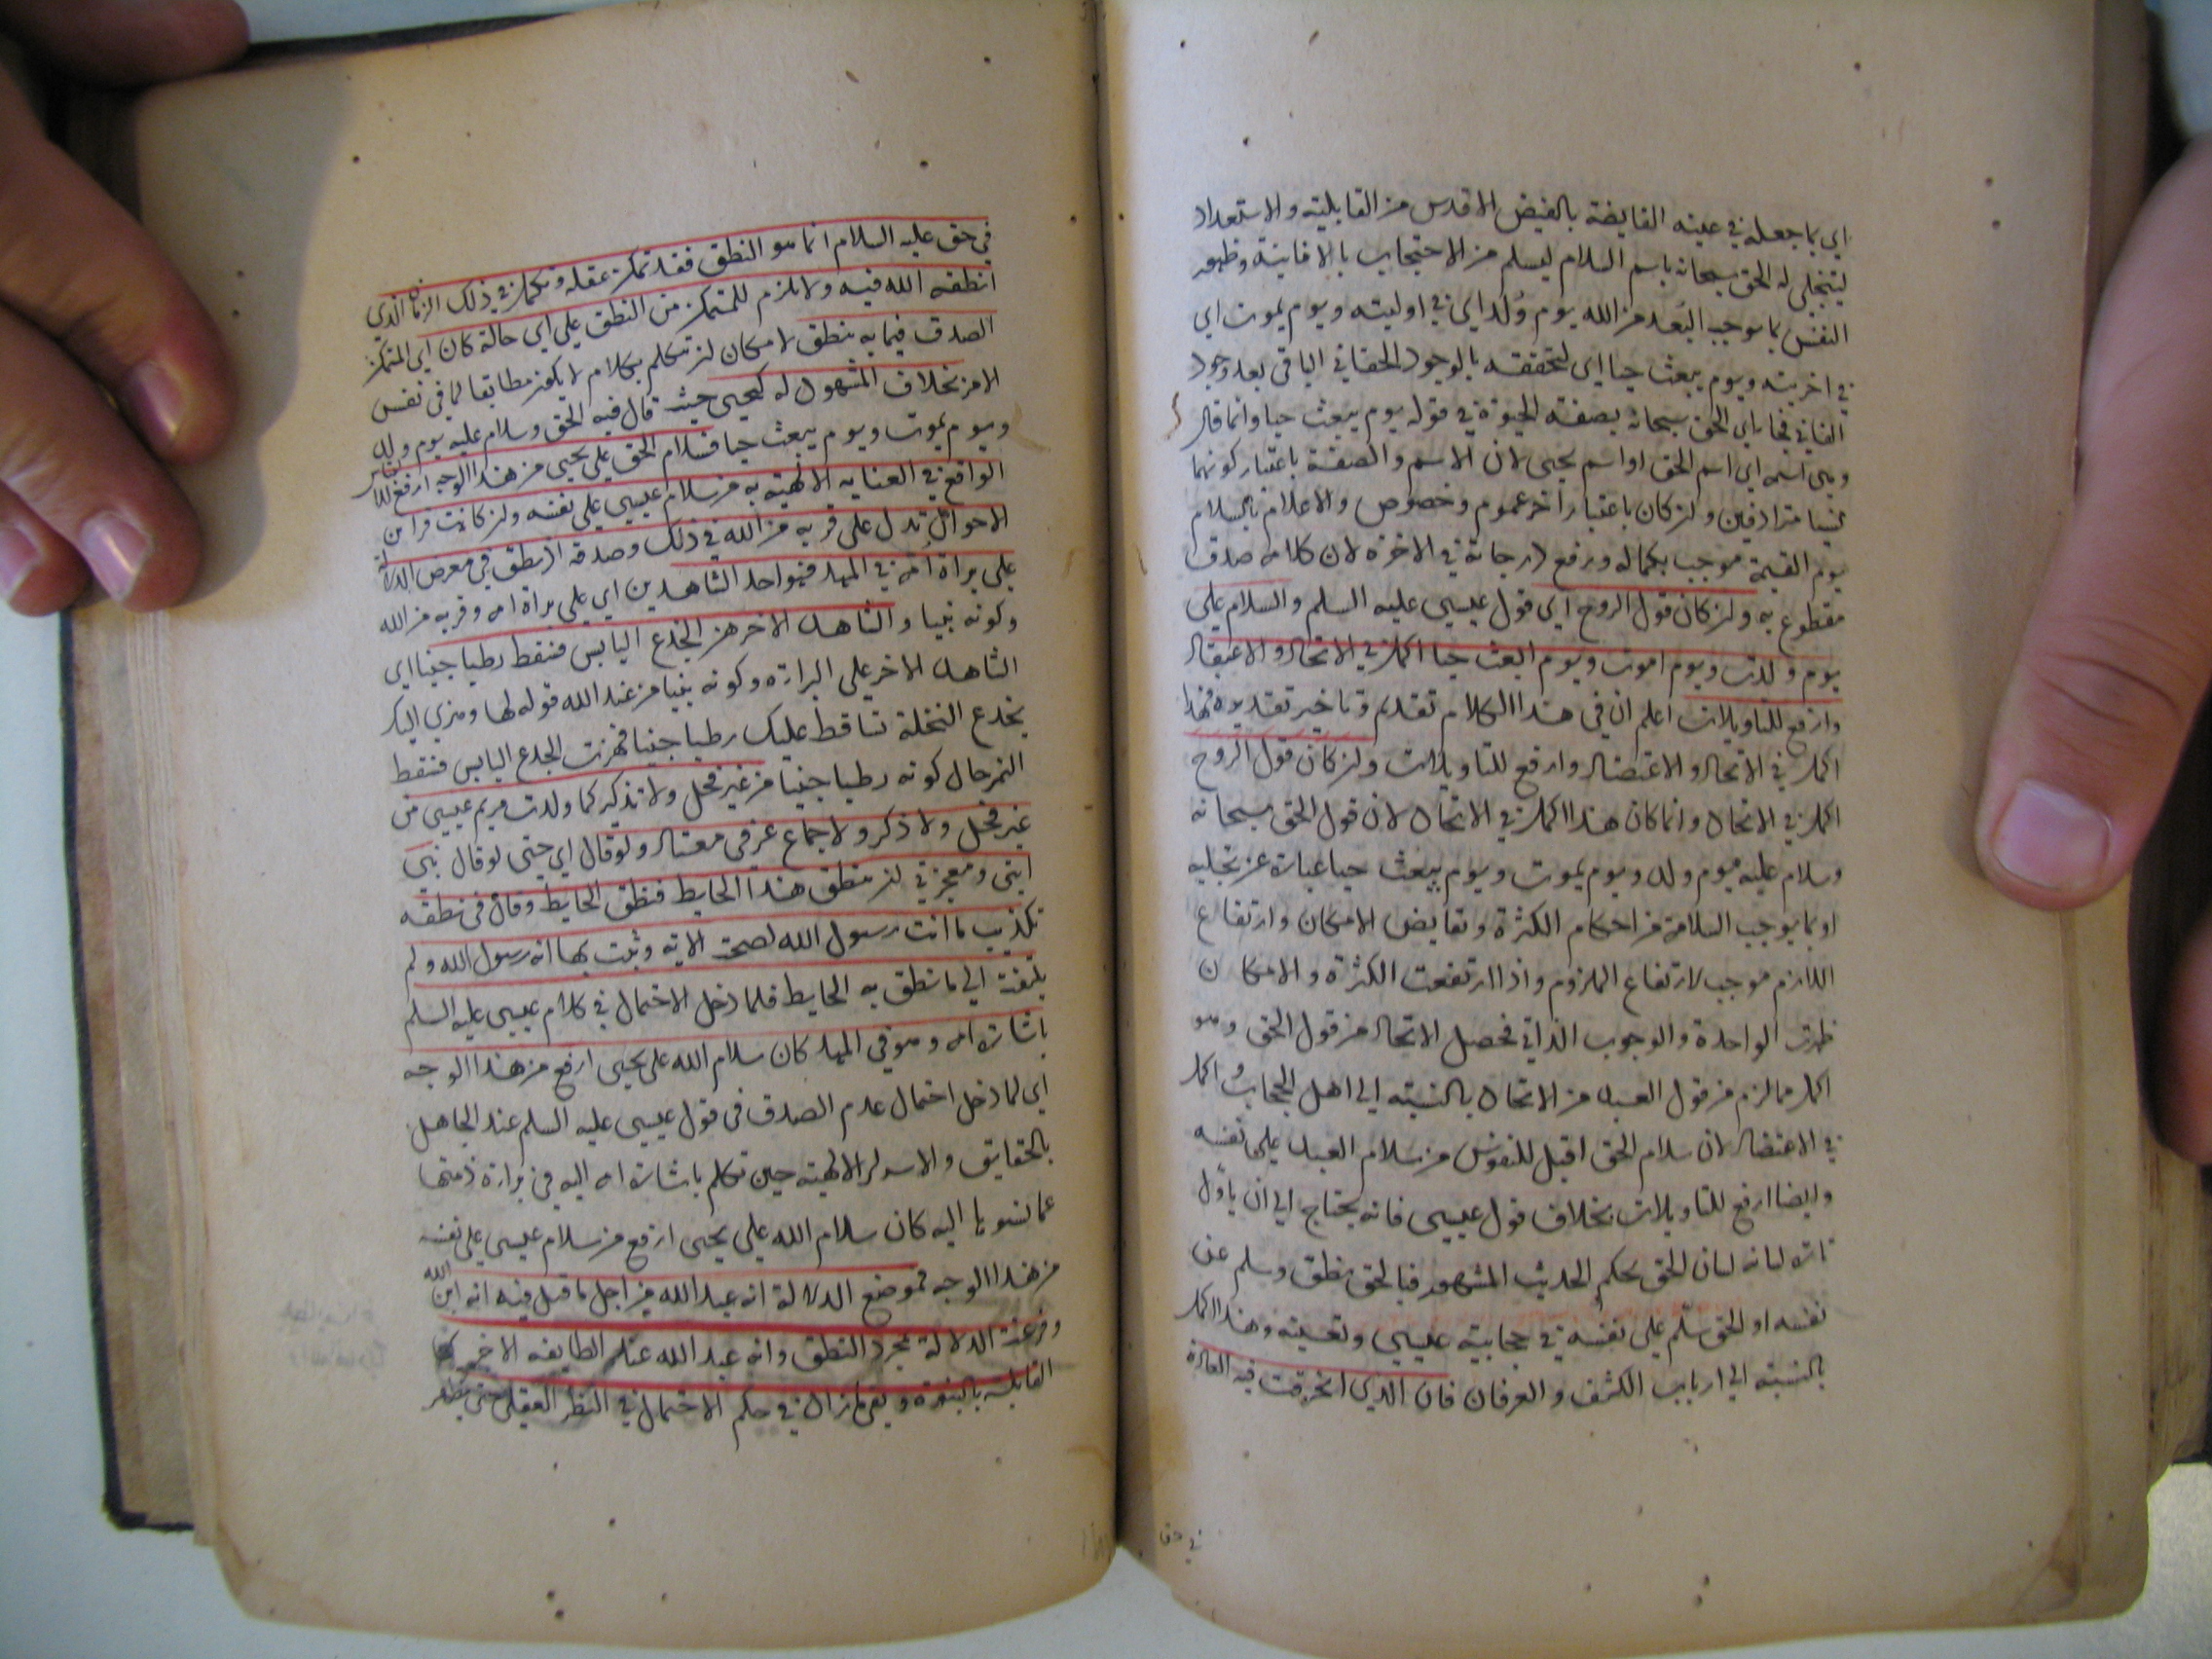 اي بما جعله في عينه الفايضة بالفيض الاقدس من القابليته والاستعداد
ليتجلى له الحق سبحانه باسم السلام ليسلم من الاحتجاب بالانانية وظهور
النفس بما يوجب البعد من الله يوم ولد اي في اوليته ويوم يموت اي
في اخريته ويوم يبعث حيا اي لتحققه بالوجود الحقاني الباقي بعد وجود
الفاني فجاء اي الحق سبحانه بصفته الحيوة في قوله يوم يبعث حيا وانما قال
وهي اسمه اي اسم الحق او اسم يحيى لان الاسم والصفة باعتبار كونهما
شيئا مترادفين ولن كان باعتبار اخر عموم وخصوص والاعلام بالسلام
يوم القيمة موجب بكماله ورفع درجاته في الاخرة لان كلامه صدق
مقطوع به ولن كان قول الروح اي قول عيسى عليه السلم والسلام علي
يوم ولدت ويوم اموت ويوم ابعث حيا اكمل في الاتحاد والاعتقاد
وارفع للتاويلات اعلم ان في هذا الكلام تقديم وتاخير تقديره فهذا
اكمل في الاتحاد والاعتضاد وارفع للتاويلات ولن كان قول الروح
اكمل في الاتحاد وانما كان هذا اكمل في الاتحاد لان قول الحق سبحانه
وسلام عليه يوم ولد ويوم يموت ويوم يبعث حيا عبارة عن تجليه
او بما يوجب السلامة من احكام الكثرة ونقايض الامكان وارتفاع
اللازم موجب لارتفاع الملزوم واذا ارتفعت الكثرة والامكان
ظهرت الواحدة والوجوب الذاتي فحصل الاتحاد من قول الحق وهو
اكمل مما لزم من قول العبد من الاتحاد بالنسبته الى اهل الحجاب واكمل
في الاعتضاد لان سلام الحق اقبل للنفوس من سلام العبد على نفسه
وايضا ارفع للتاويلات بخلاف قول عيسى فانه يحتاج الى ان ياول
انه لسانه لسان الحق بحكم الحديث المشهور فبالحق ينطق وسلم عن
نفسه او الحق سلم على نفسه في حجابية عيسى وتعينه وهذا اكمل
بالنسبته الى ارباب الكشف والعرفان فان الذي انخرقت فيه العادة
في حق
في حق عليه السلام انما هو النطق فقد تمكن عقله وتكمل في ذلك الزمان الذي
انطقه الله فيه ولا يلزم للمتمكن من النطق على اي حالة كان اي المتمكن
الصدق فيما به ينطق لامكان لن يتكلم بكلام لا يكون مطابقا لما في نفس
الامر بخلاف المشهود له كيحيى حيث قال فيه الحق وسلام عليه يوم ولد
ويوم يموت ويوم يبعث حيا فسلام الحق على يحيى من هذا الوجه ارفع للالتباس
الواقع في العنايه الالهيته به من سلام عيسى على نفسه ولن كانت قراين
الاحوال تدل على قربه من الله في ذلك وصدقه اذ نطق في معرض الدلالة
على براة امه في المهد فهو احد الشاهدين اي على براة امه وقربه من الله
وكونه نبيا والشاهد الاخر هز الجذع اليابس فسقط رطبا جنيا اي
الشاهد الاخر على البراءة وكونه نبيا من عند الله قوله لها وهزي اليك
بجذع النخلة تساقط عليك رطبا جنيا فهزت الجذع اليابس فسقط
التمر حال كونه رطبا جنيا من غير فحل ولا تذكير كما ولدت مريم عيسى من
غير فحل ولا ذكر ولا جماع عرفي معتاد ولو قال اي حتى لو قال نبي
ايتي ومعجزتي لن ينطق هذا الحايط فنطق الحايط وقال في نطقه
تكذب ما انت رسول الله لصحت الاية وثبت بها انه رسول الله ولم
يلتفت الى ما ينطق به الحايط فلما دخل الاحتمال في كلام عيسى عليه السلم
باشارة امه وهو في المهد كان سلام الله على يحيى ارفع من هذا الوجه
اي لما دخل احتمال عدم الصدق في قول عيسى عليه السلم عند الجاهل
بالحقايق والاسرار الالهيته حين تكلم باشارة امه اليه في براءة ذمتها
عما نسبوها اليه كان سلام الله على يحيى ارفع من سلام عيسى على نفسه
من هذا الوجه فموضع الدلالة انه عبد الله من اجل ما قيل فيه انه ابن الله
وفرغت الدلالة بمجرد النطق وانه عبد الله عند الطايفه الاخرى
القايلة بالنبوة وبقى ما زاد في حكم الاحتمال في النظر العقلي حتى يظهر